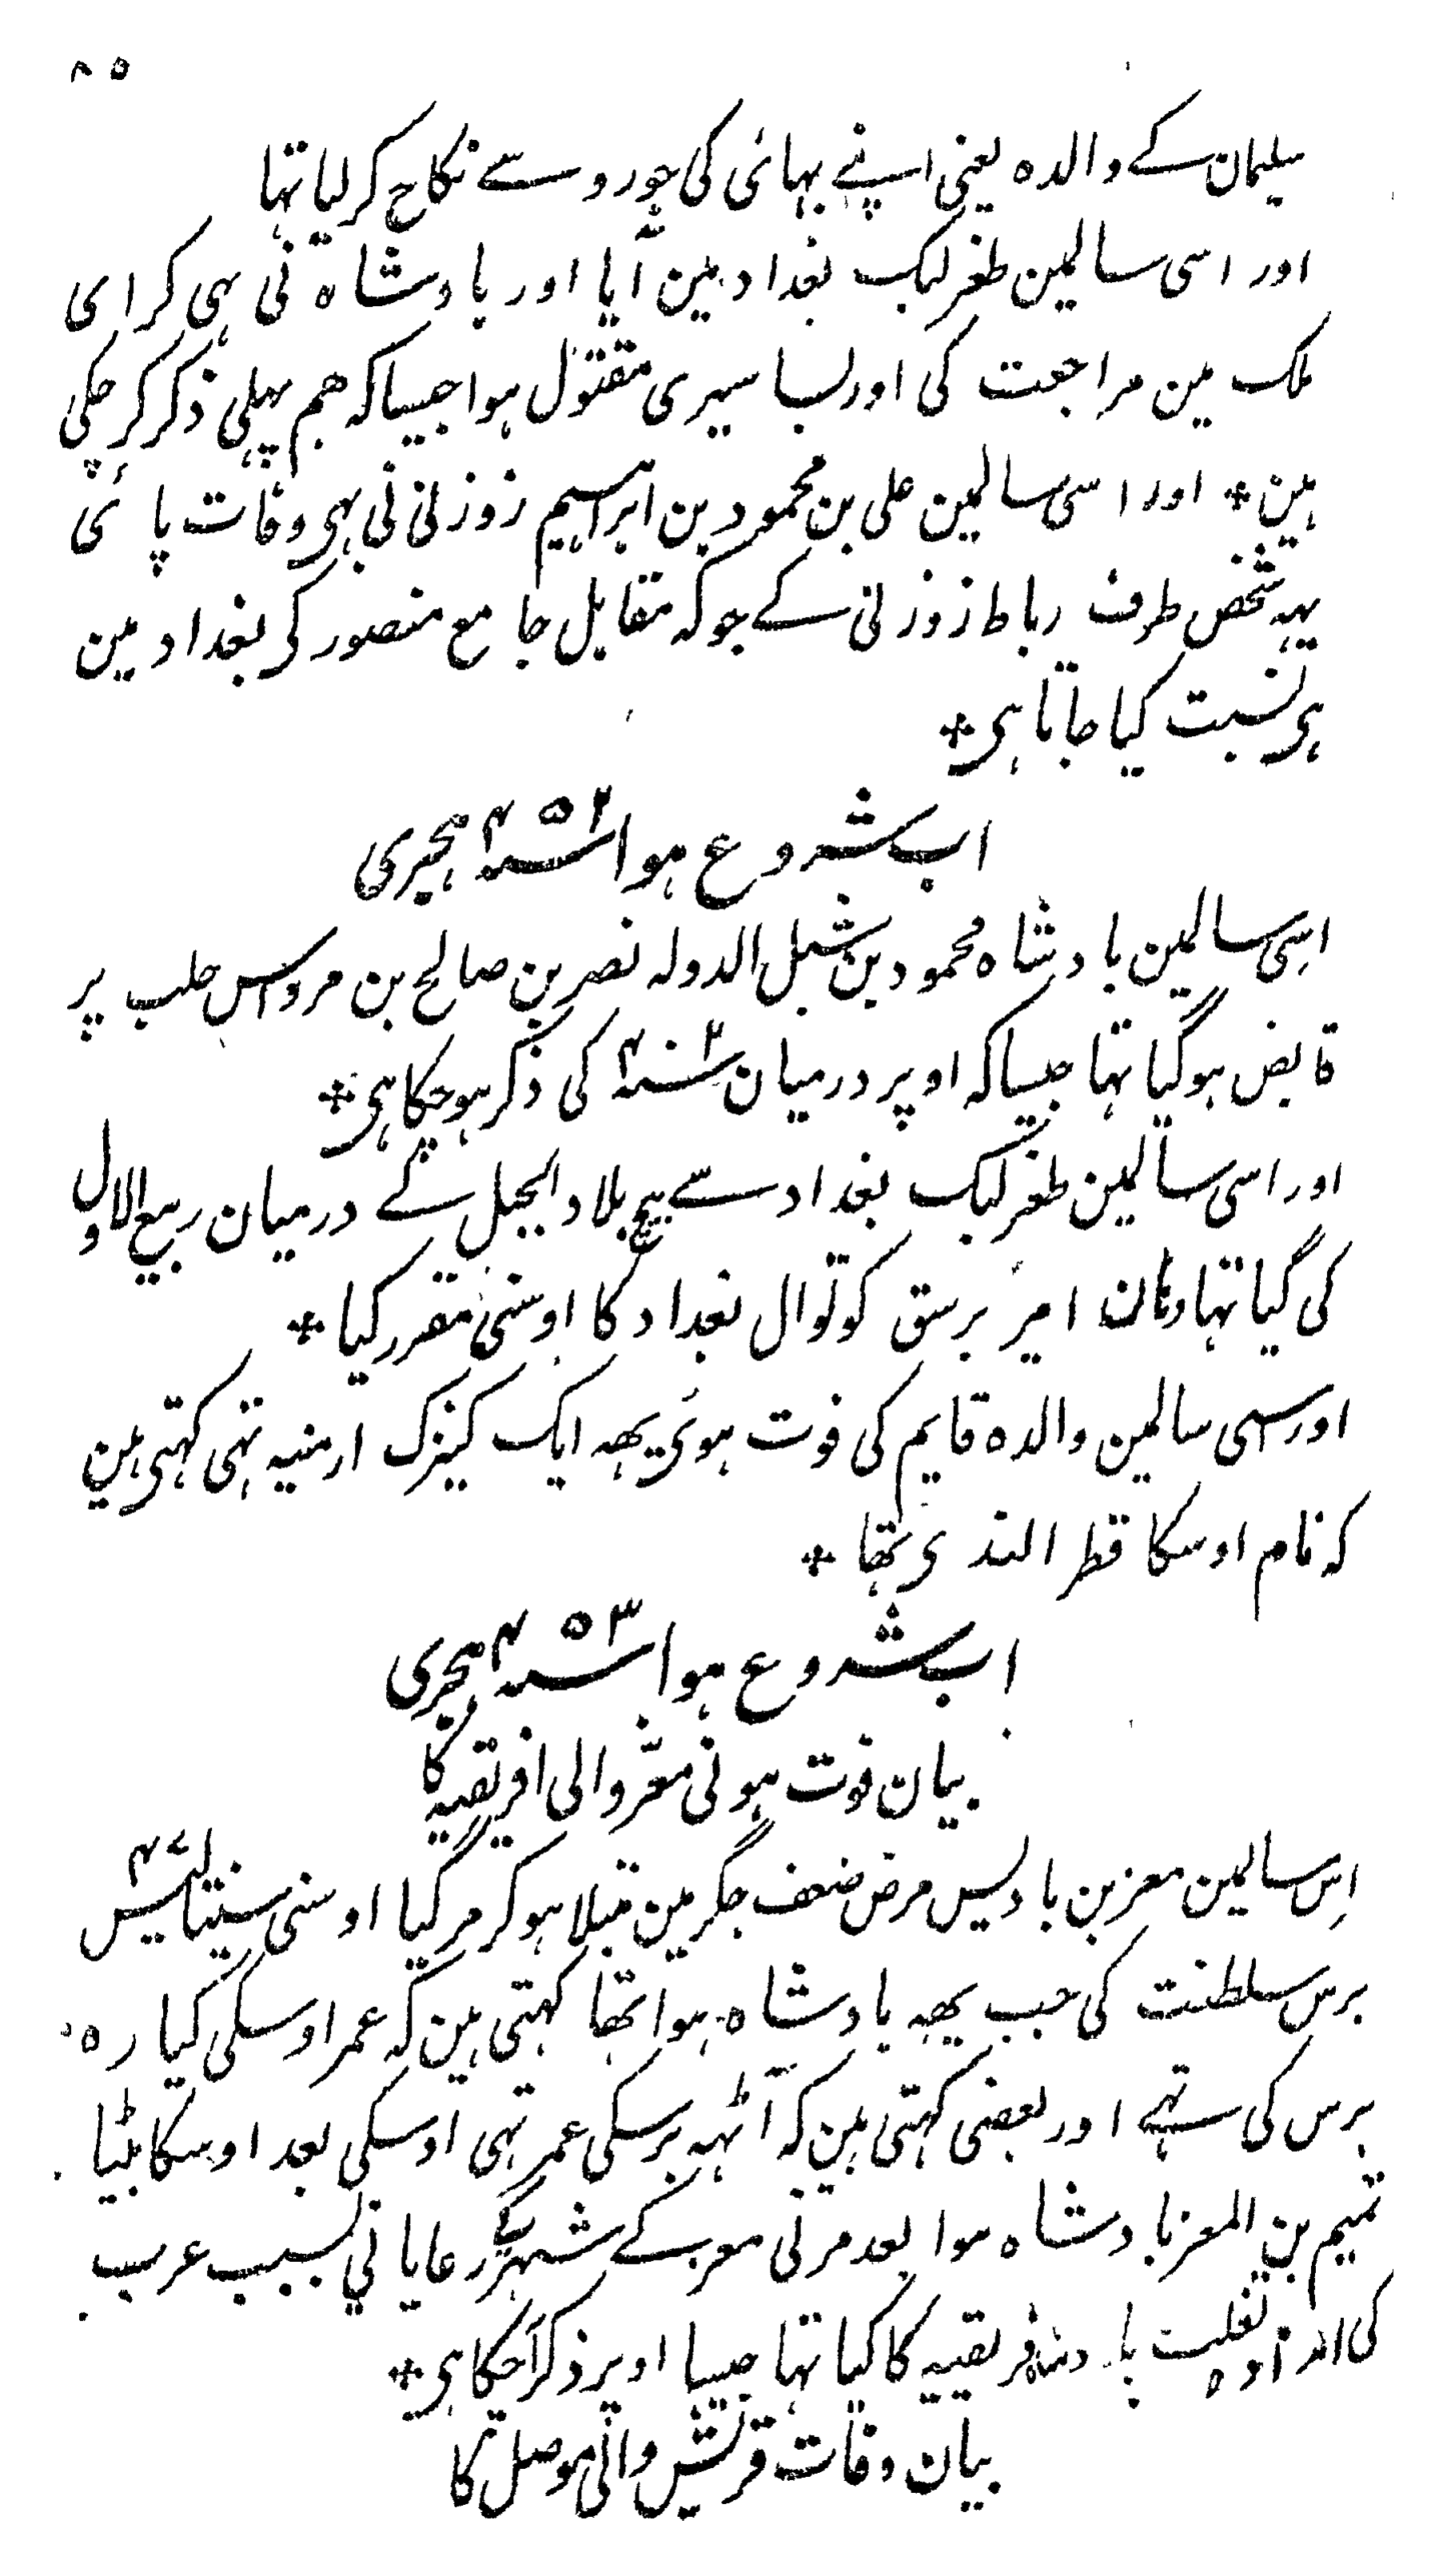 ۸۵
سلیمان کے والدہ یعنی اپنے بہائی کی جورو سے نکاح کر لیا تہا
اور اسی سالمین طغرلبک بغداد مین آیا اور بادشاہ نی ہی کرای
ملک مین مراجعت کی اور بساسیری مقتول ہوا جیسا کہ ھم پہلی ذکر کر چکی
ہین * اور اسی سالمین علی بن محمود بن ابراہیم زوزنی نی بہی وفات پائی
یہہ شخص طرف رباط زوزنی کے جو کہ مقابل جامع منصور کی بغداد مین
ہی نسبت کیا جاتا ہی *
اب شروع ہوا سنہ ۴۵۲ ہجری
اسی سالمین بادشاہ محمود بن شبل الدولہ نصر بن صالح بن مرداس حلب پر
قابض ہو گیا تہا جیسا کہ اوپر درمیان سنہ ۴۰۲ کی ذکر ہو چکا ہی *
اور اسی سالمین طغرلبک بغداد سے بیچ بلاد الجبل کے درمیان ربیع الاول
کی گیا تہا وہان امیر برسق کو کوتوال بغداد کا اوسنی مقرر کیا *
اور سی سالمین والدہ قایم کی فوت ہوئی یہہ ایک کنیزک ارمنیہ تہی کہتی ہین
کہ نام اوسکا قطر الندی تھا *
اب شروع ہوا سنہ ۴۵۳ ہجری
بیان فوت ہونی معز والی افریقیہ کا
اس سالمین معز بن بادیس مرض ضعف جگر مین مبتلا ہو کر مر گیا اوسنی سینتالیس ۴۷
برس سلطنت کی جب یھہ بادشاہ ہوا تھا کہتی ہین کہ عمر اوسکی گیارہ
برس کی تہے اور بعضی کہتی ہین کہ آٹہہ برسکی عمر تہی اوسکی بعد اوسکا بیٹا
تمیم بن المعز بادشاہ ہوا بعد مرنی معز کے شہر کے رعایا نی بسبب عرب
کی تغلب افریقیہ کا کیا تہا جیسا اوپر ذکر آچکا ہی *
بیان وفات قریش والی موصل کا